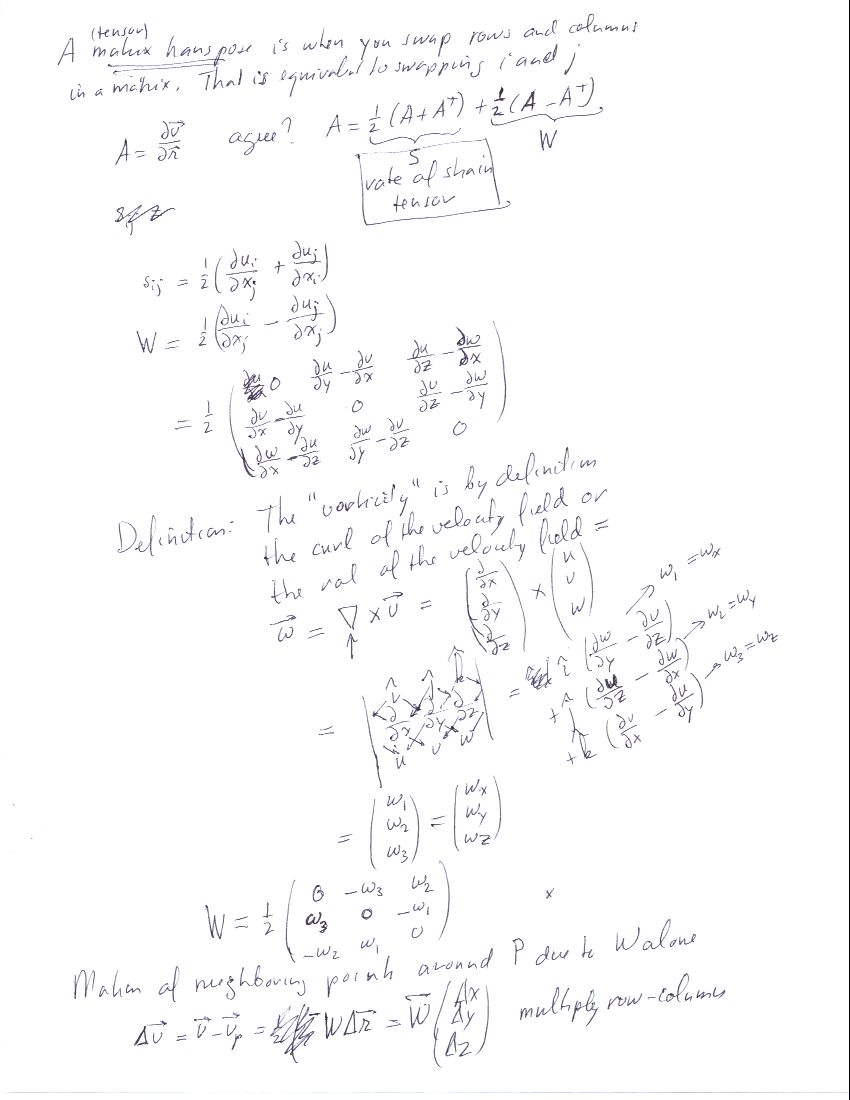 (tensor)
A matrix transpose is when you swap rows and columns
in a matrix. That is equivalent to swapping i and j
A = ∂v⃗/∂r⃗ agree? A = ½ (A + A^T) + ½ (A − A^T)
S W
rate of strain
tensor
s_ij = ½ (∂u_i/∂x_j + ∂u_j/∂x_i)
W = ½ (∂u_i/∂x_j − ∂u_j/∂x_j)
= ½ ( 0 ∂u/∂y − ∂v/∂x ∂u/∂z − ∂w/∂x
∂v/∂x − ∂u/∂y 0 ∂v/∂z − ∂w/∂y
∂w/∂x − ∂u/∂z ∂w/∂y − ∂v/∂z 0 )
Definition: The "vorticity" is by definition
the curl of the velocity field or
the rot of the velocity field =
ω⃗ = ∇ × v⃗ = (∂/∂x ∂/∂y ∂/∂z) × (u v w)
= | î ĵ k̂
∂/∂x ∂/∂y ∂/∂z
u v w | = î (∂w/∂y − ∂v/∂z) → ω₁ = ω_x
+ ĵ (∂u/∂z − ∂w/∂x) → ω₂ = ω_y
+ k̂ (∂v/∂x − ∂u/∂y) → ω₃ = ω_z
= (ω₁ ω₂ ω₃) = (ω_x ω_y ω_z)
W = ½ ( 0 −ω₃ ω₂
ω₃ 0 −ω₁
−ω₂ ω₁ 0 ) x
Motion of neighboring points around P due to W alone
Δv⃗ = v⃗ − v⃗_p = W Δr⃗ = W⃗ (Δx Δy Δz) multiply row-columns